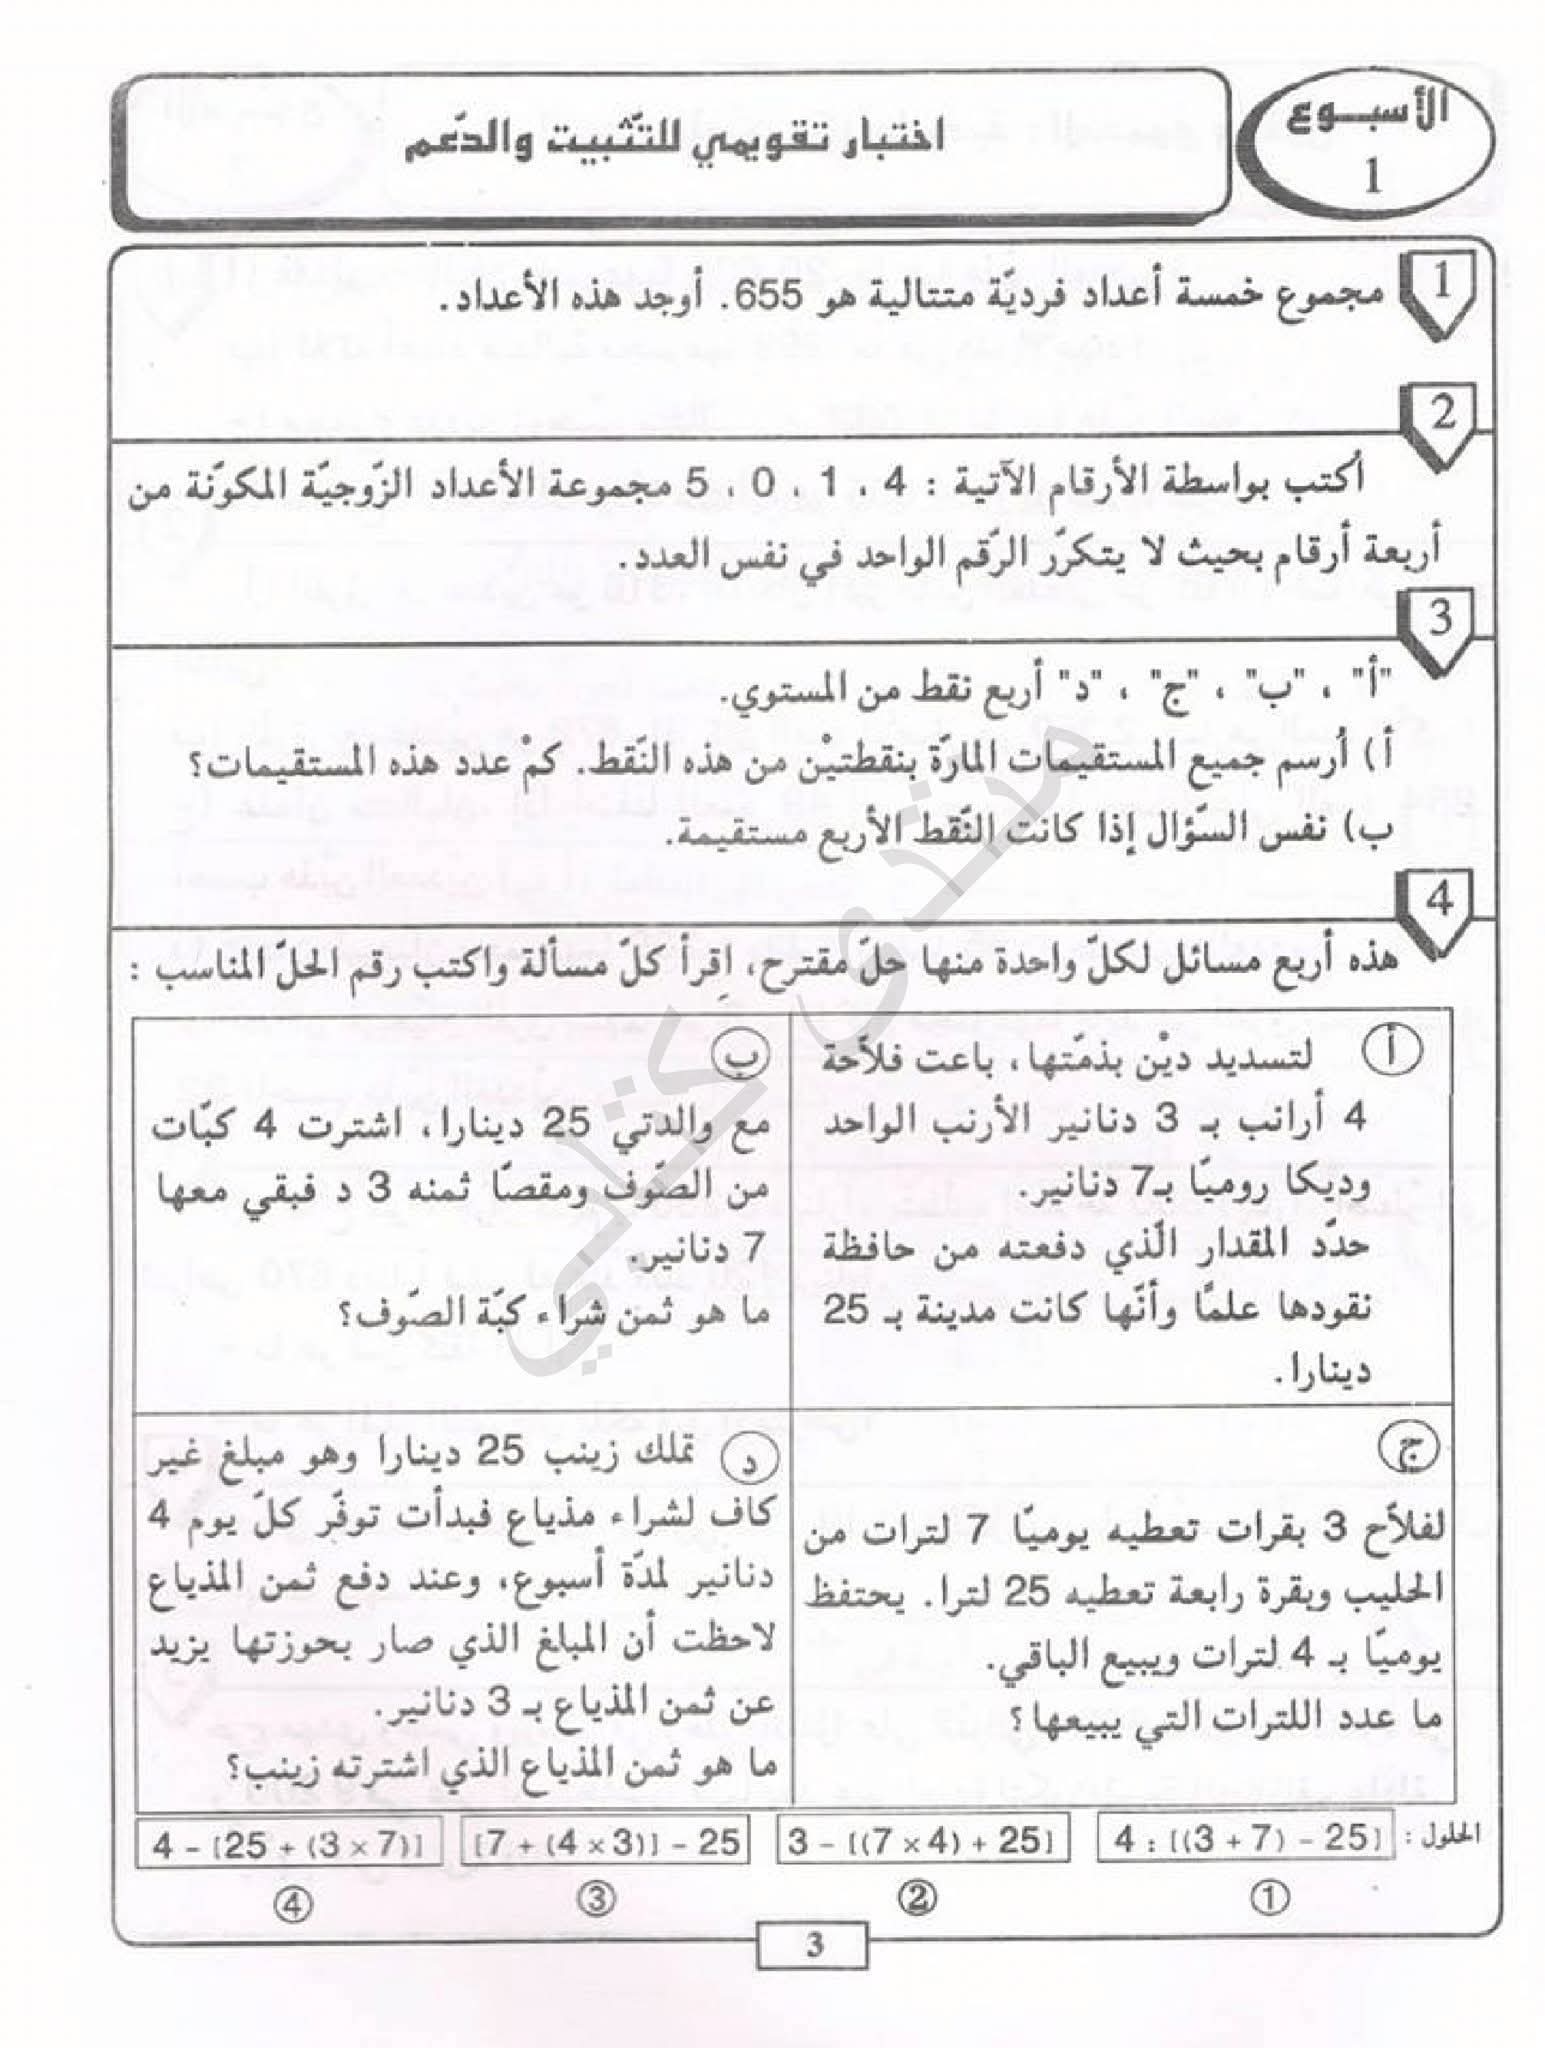 الأسبوع
1
اختبار تقويمي للتّثبيت والدّعم
1
مجموع خمسة أعداد فرديّة متتالية هو 655. أوجد هذه الأعداد.
2
أكتب بواسطة الأرقام الآتية : 4 ، 1 ، 0 ، 5 مجموعة الأعداد الزّوجيّة المكوّنة من
أربعة أرقام بحيث لا يتكرّر الرّقم الواحد في نفس العدد.
3
"أ" ، "ب" ، "ج" ، "د" أربع نقط من المستوي.
أ) أرسم جميع المستقيمات المارّة بنقطتيْن من هذه النّقط. كمْ عدد هذه المستقيمات؟
ب) نفس السّؤال إذا كانت النّقط الأربع مستقيمة.
4
هذه أربع مسائل لكلّ واحدة منها حلّ مقترح، اِقرأ كلّ مسألة واكتب رقم الحلّ المناسب :
أ لتسديد ديْن بذمّتها، باعت فلاّحة
4 أرانب بـ 3 دنانير الأرنب الواحد
وديكا روميّا بـ7 دنانير.
حدّد المقدار الّذي دفعته من حافظة
نقودها علمًا وأنّها كانت مدينة بـ 25
دينارا.
ب
مع والدتي 25 دينارا، اشترت 4 كبّات
من الصّوف ومقصّا ثمنه 3 د فبقي معها
7 دنانير.
ما هو ثمن شراء كبّة الصّوف؟
ج
لفلاّح 3 بقرات تعطيه يوميّا 7 لترات من
الحليب وبقرة رابعة تعطيه 25 لترا. يحتفظ
يوميّا بـ 4 لترات ويبيع الباقي.
ما عدد اللترات التي يبيعها؟
د تملك زينب 25 دينارا وهو مبلغ غير
كاف لشراء مذياع فبدأت توفّر كلّ يوم 4
دنانير لمدّة أسبوع، وعند دفع ثمن المذياع
لاحظت أن المبلغ الذي صار بحوزتها يزيد
عن ثمن المذياع بـ 3 دنانير.
ما هو ثمن المذياع الذي اشترته زينب؟
الحلول :
4 : [(3 + 7) – 25]
3 – [(7 × 4) + 25]
[7 + (4 × 3)] – 25
4 – [25 + (3 × 7)]
①
②
③
④
3
منتدى كتابي